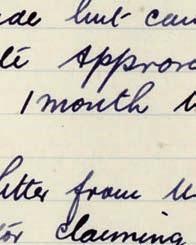 ade but can
te approv
1 month
litter from
for claiming